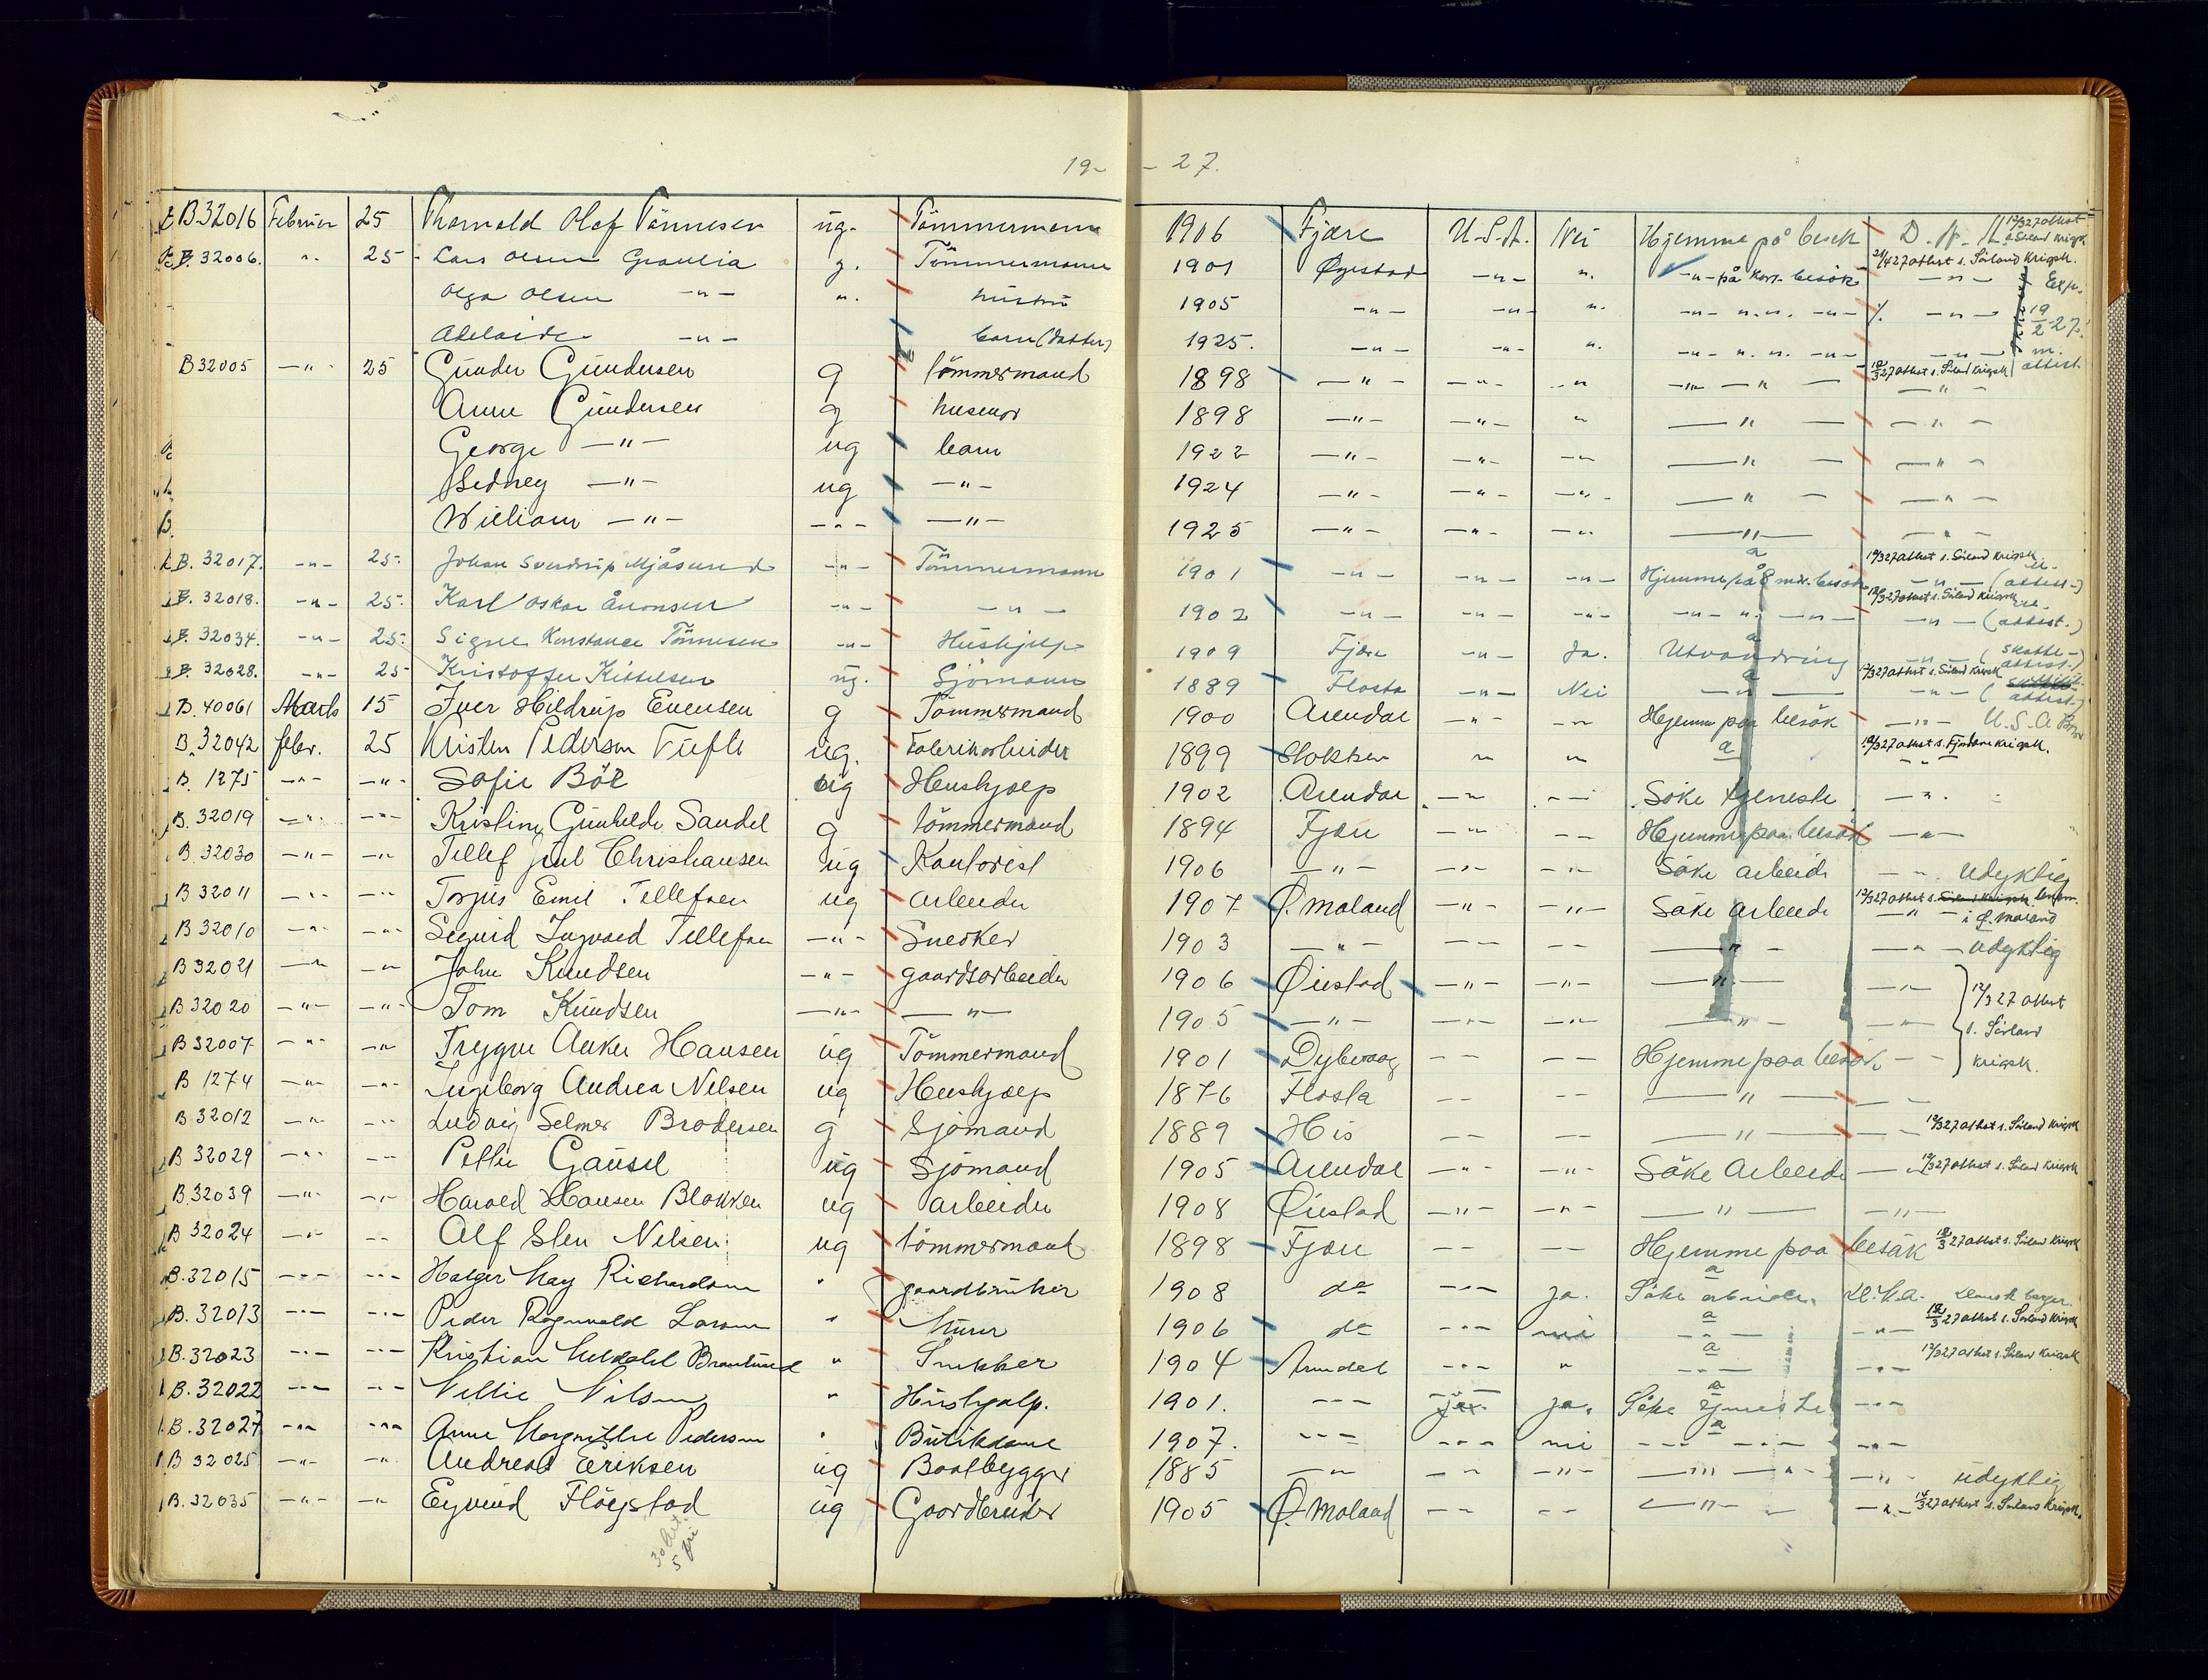 19- - 27.
B 32016 Februar 25 Thorvald Olaf Tönnesen ug. Tömmermann 1906 Fjære U.S.A. Nei Hjemme på besök D.N.A. 12/3 27 attest s. Sörland Krigsk.
B. 32006. " 25 Lars Olsen Graulia g. Tömmermann 1901 Øyestad -"- ". -"- på kort besök -"- 21/4 27 attest s. Sörland Krigsk.
Olga Olsen -"- ". hustru 1905 -"- -"- ". -"- ". ". -"- -"- Exp. 19/2 27.
Adelaide -"- barn (datter) 1925. -"- -"- ". -"- ". ". -"- -"- attest.
B 32005 -"- 25 Gunder Gundersen g tömmermand 1898 -"- -"- " -"- " - -"- 12/3 27 attest s. Sörland Krigsk
Anne Gundersen g husmor 1898 -"- -"- " -"- -"-
George -"- ug barn 1922 -"- -"- -"- -"- -"-
Sidney -"- ug -"- 1924 -"- -"- -"- -"- -"-
William -"- -"- -"- 1925 -"- -"- -"- -"- -"-
B. 32017. -"- 25. Johan Sverdrup Mjåsund -"- Tömmermann 1901 -"- -"- -"- Hjemme på 8 mdr. besök -"- (attest.) 12/3 27 attest s. Sörland Krigsk.
B. 32018. -"- 25. Karl Oskar Åronsen -"- -"- 1902 -"- -"- -"- -"- ". -"- -"- (attest.) 12/3 27 attest s. Sörland Krigsk
B. 32034. -"- 25. Signe Konstance Tönnesen -"- Hushjelp 1909 Fjære -"- Ja. Utvandring -"- (skatte-attest.)
B. 32028. -"- 25 Kristoffer Kittelsen ug. Sjömann 1889 Flosta -"- Nei -"- -"- (attest.) 12/3 27 attest s. Sörland Krigsk
B. 40061 Marts 15 Iver Hildrup Evensen g Tömmermand 1900 Arendal -"- -"- Hjemme paa besök -"- U.S.A.
B. 32042 febr. 25 Kristen Pedersen Tufte ug. Fabrikarbeider 1899 Stokken " " a -"- 12/3 27 attest s. Fjordane Krigsk.
B. 1275 -"- -"- Sofie Böe ug Hushjælp 1902 Arendal -"- -"- Söke tjeneste -"-
B. 32019 -"- -"- Kristine Gunhilde Sandel g tömmermand 1894 Fjære -"- -- Hjemme paa besök -"-
B. 32030 -"- -"- Tellef Juul Christiansen ug Kontorist 1906 -"- -"- -"- Söke arbeide -"- Udyktig
B 32011 -"- -"- Torjus Emil Tellefsen ug arbeider 1907 Ø. Moland -"- -"- Söke arbeide -"- 12/3 27 attest s. i Ø. Moland
B 32010 -"- -"- Sigurd Ingvald Tellefsen -"- Snedker 1903 -"- -- -- -"- -"- udyktig
B 32021 -"- -"- John Knudsen -"- gaardsarbeider 1906 Øiestad -"- -"- -"- -"- 12/3 27 attest
B 32020 -"- -"- Tom Knudsen -"- -"- 1905 -"- -"- -"- -"- -"- s. Sörland
B 32007 -"- -"- Trygve Anker Hansen ug Tömmermand 1901 Dybvaag -- -- Hjemme paa besök -- Krigsk.
B 1274 -"- -"- Ingeborg Andrea Nilsen ug Hushjælp 1876 Flosta -- -- -"- --
B. 32012 -"- -"- Ludvig Selmer Brodersen g Sjömand 1889 His -- -- -"- -- 12/3 27 attest s. Sörland Krigsk
B 32029 -"- -- Petter Gausel ug Sjömand 1905 Arendal -"- -"- Söke Arbeide -"- 12/3 27 attest s. Sörland Krigsk
B. 32039 -"- -"- Harald Hansen Blakken ug arbeider 1908 Øiestad -"- -"- -"- -"-
B 32024 -"- -- Alf Sten Nilsen ug tömmermand 1898 Fjære -- -- Hjemme paa besök 12/3 27 attest s. Sörland Krigsk
B. 32015 -"- -"- Holger May Richardsen " gaardbruker 1908 do -"- ja. Söke arbeide. U.S.A. Dansk borger.
B. 32013 -"- -"- Peder Ragnvald Larsen " Murer 1906 do -"- nei -"- -"- 12/3 27 attest s. Sörland Krigsk
B. 32023 -"- -"- Kristian " Snekker 1904 Arendal -"- " -"- -"- 12/3 27 attest s. Sörland Krigsk
B. 32022 -"- -"- Nellie Nilsen " Hushjalp. 1901. -"- -"- ja. Söke tjeneste -"-
B. 32027 -"- -"- Anne Margrethe Pedersen " Butikdame 1907. -"- -"- nei -"- -"- -"-
B 32025 -"- -"- Andreas Eriksen ug Baatbygger 1885 -"- -- -"- -"- -"- -"- udyktig
B. 32035 -"- -"- Eyvind Flöystad ug Gaardbruker 1905 Ø. Moland -- -- -"- -"- 12/3 27 attest s. Sörland Krigsk.